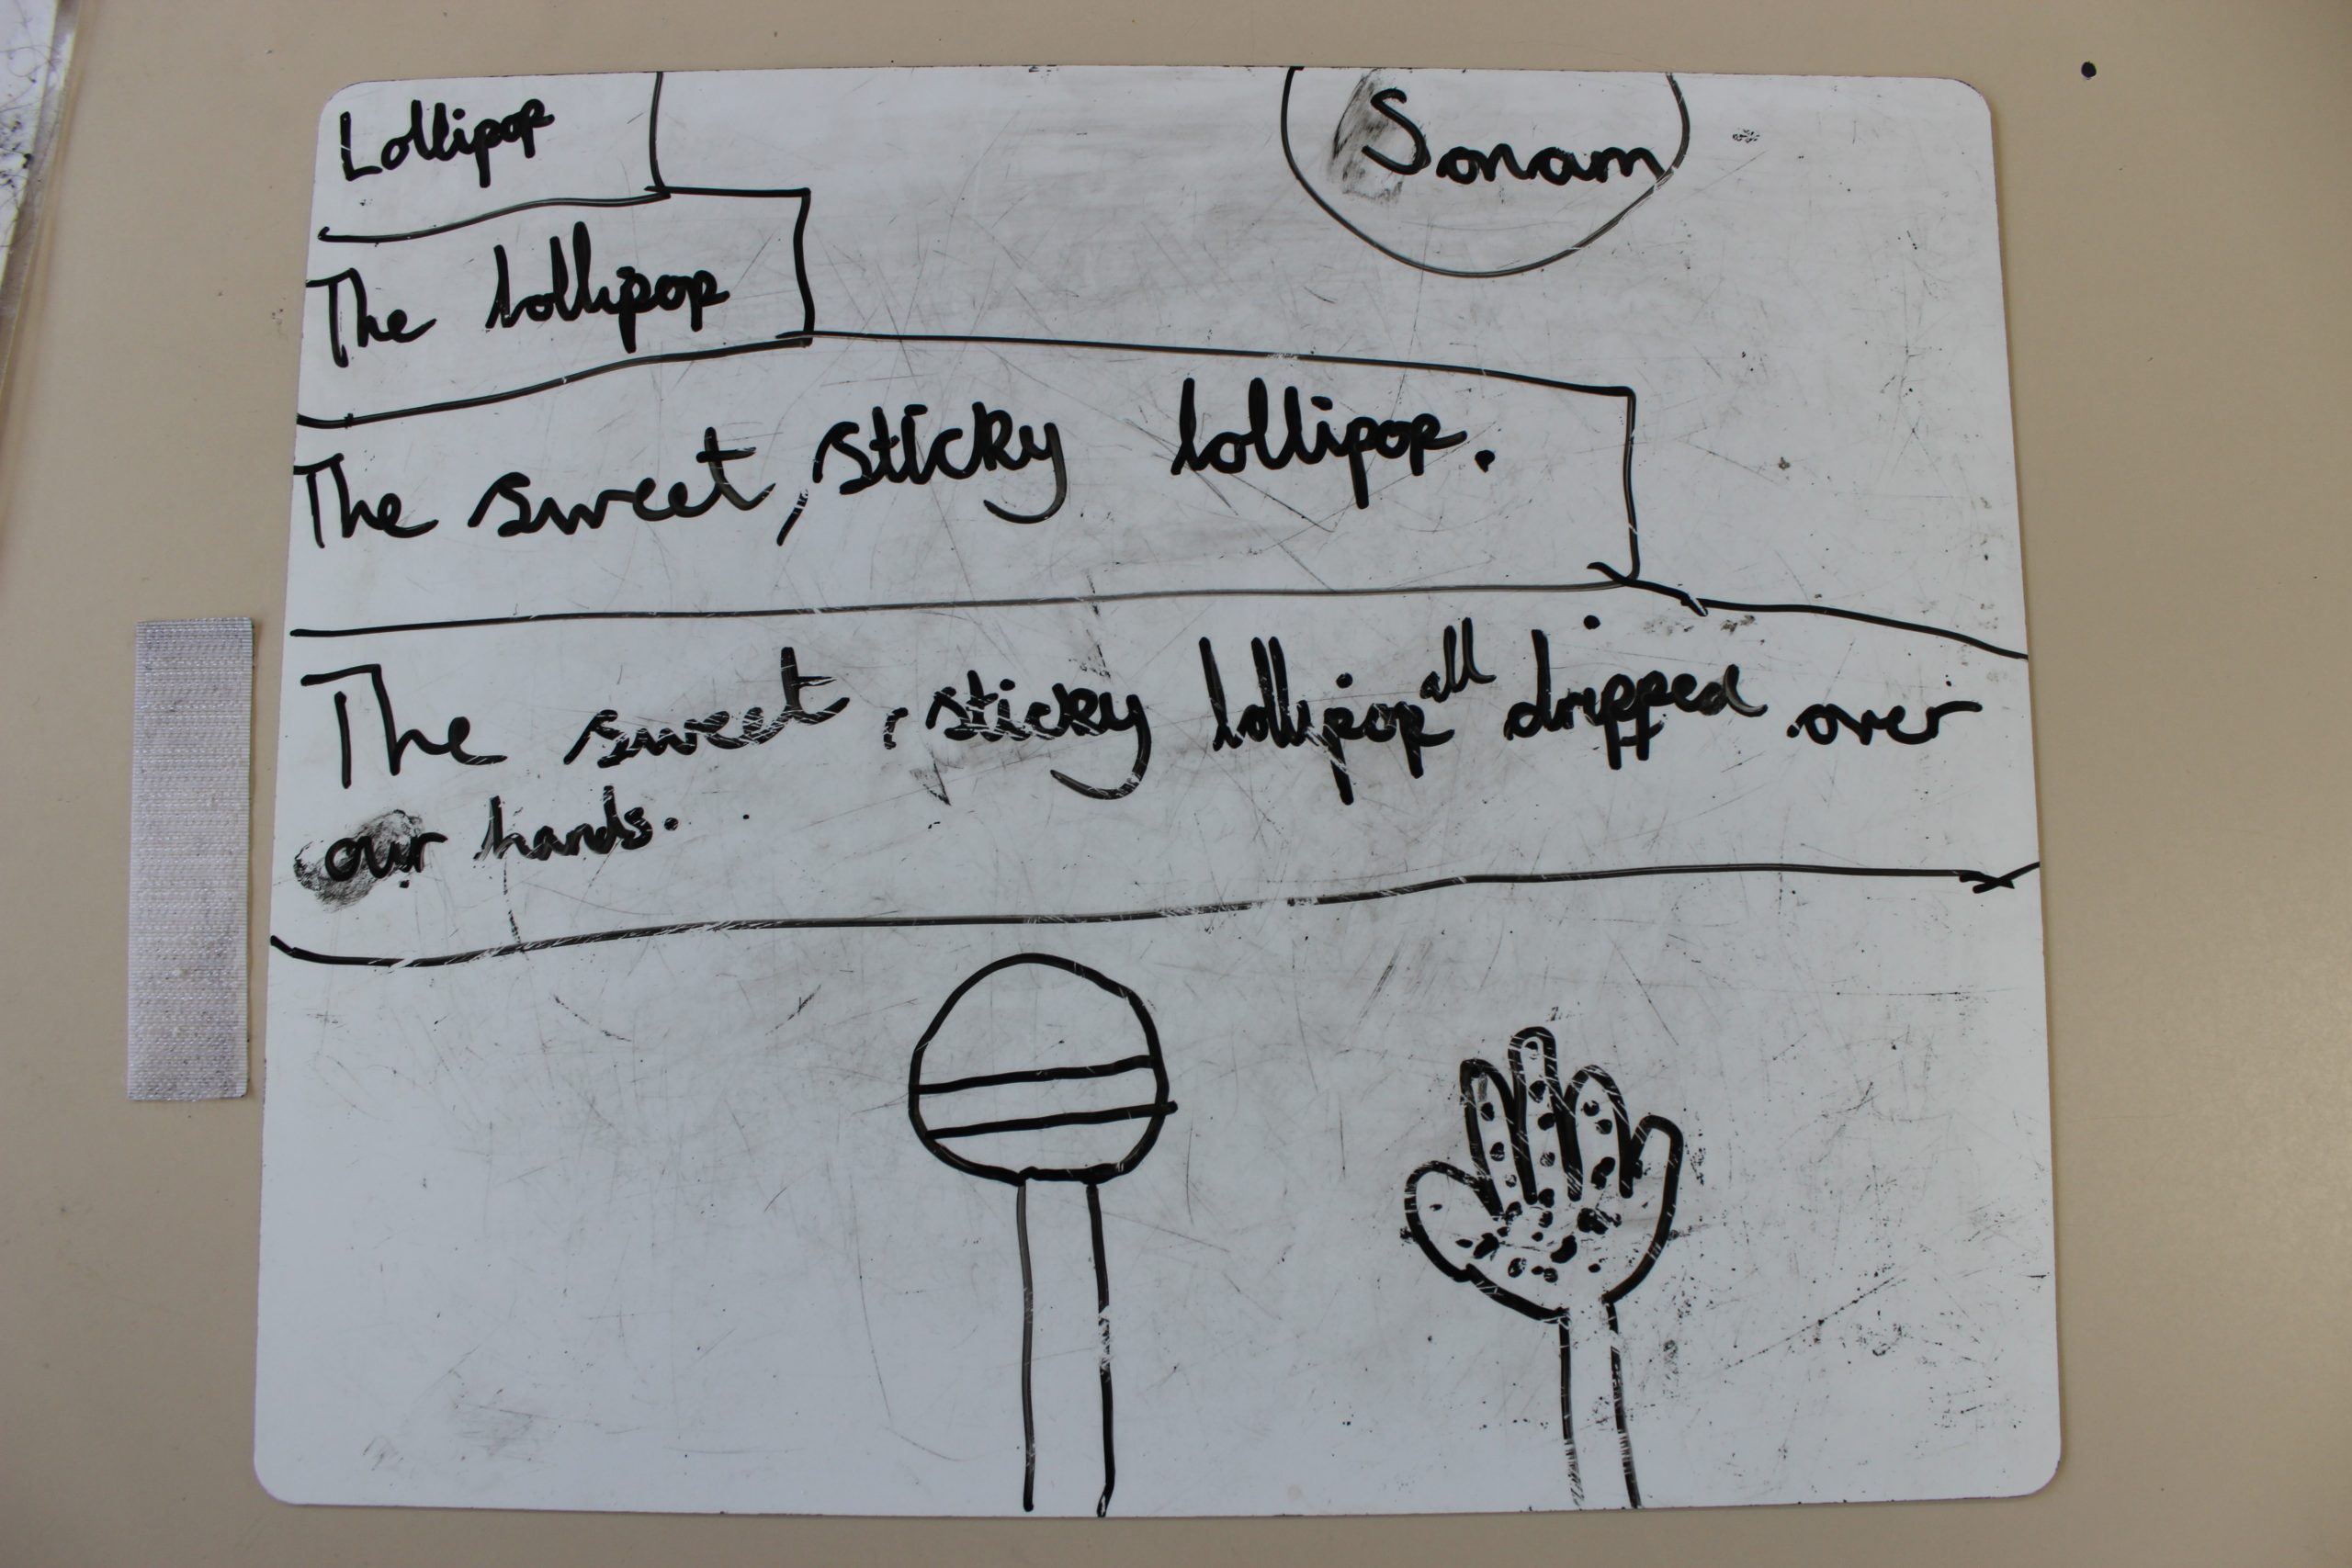 Lollipop
Sonam
The lollipop
The sweet, sticky lollipop.
The sweet, sticky lollipop all dripped over
our hands.